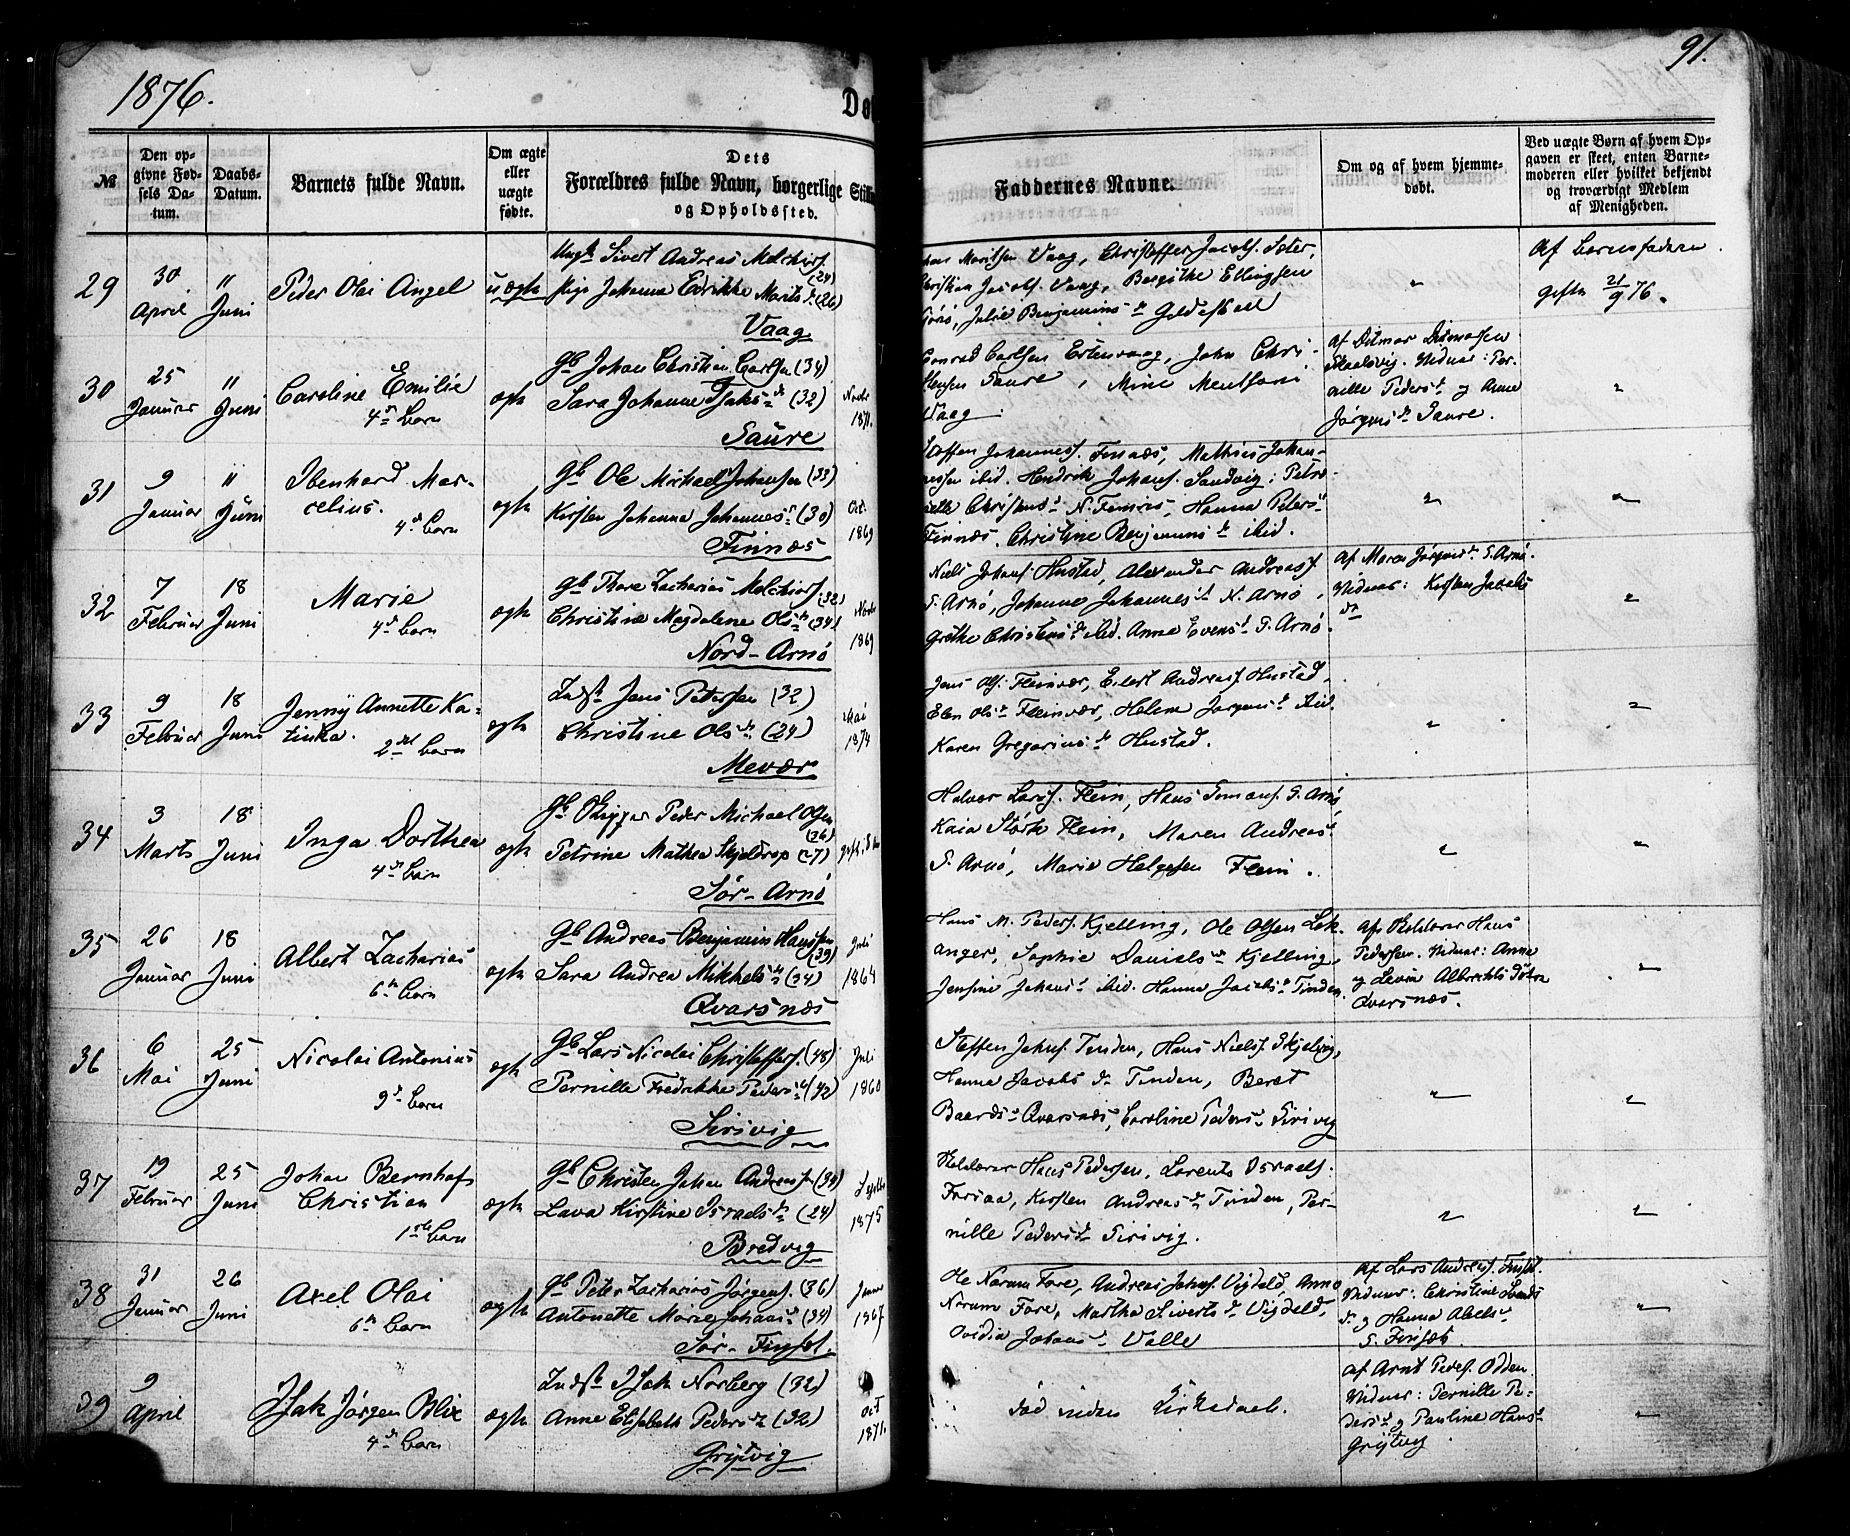 1876.
91.
Dø
№
Den op-
givne Fød-
sels Da-
tum.
Daabs-
Datum.
Barnets fulde Navn.
Om ægte
eller
uægte
fødte.
Dets
Forældres fulde Navn, borgerlige Still
og Opholdssted.
Faddernes Navne.
Om og af hvem hjemme-
døbt.
Ved uægte Børn af hvem Op-
gaven er skeet, enten Barne-
moderen eller hvilket bekjendt
og troværdigt Medlem
af Menigheden.
29
30
April
"
Juni
Peder Olai Angel
uægte
Ungk Sivert Andreas Melchiors.
(24)
pige Johanna Edrikke Morits d. (26)
Vaag
Moritsen Vaag, Christoffer Jacobs. Seter,
Christian Jacobs. Vaag, Bergithe Ellingsen
Julie Benjamins d. Gildeskaal
"
Af Barnefaderen
gifte 21/9 76.
30
25
Januar
"
Juni
Caroline Emilie
4de barn
ægte
Gb Johan Christian Carlsen (34)
Sara Johanne Isaks d. (32)
Saure
Novbr
1871.
Conrad Carlsen Ertenvaag, John Chri-
stensen Saure, Mine Mentsani
Vaag.
af Ditmar Ditmarsen
Skaalsvig. Vidner: Per-
nille Peders d. og Anne
Jørgens d. Saure.
"
31
9
Januar
"
Juni
Ibenhard Mar-
celius.
4de barn
ægte
Gb Ole Michael Johansen (33)
Kirsten Johanna Johannes d. (30)
Finnæs
Oct.
1869
Steffen Johanness. Finnæs, Mathias Johan-
nessen ibid. Hendrik Johans. Sandvig, Petro-
nelle Christens d. N. Finnæs, Hanna Peters d.
Finnæs, Christine Benjamins d. ibid.
"
"
32
7
Februar
18
Juni
Marie
4de barn
ægte
Gb Thore Zacharias Melchiors.
(32)
Christine Magdalene Ols d. (34)
Nord-Arnö
Novbr
1869
Niels Johans. Hustad, Alexander Andreas.
S. Arnö, Johanna Johannes d. N. Arnö,
Grethe Christens d. ibid. Anna Evens d. S. Arnö.
af Maren Jörgens d. S. Arnö.
Vidner: Kirsten Jacobs
dr
"
33
9
Februar
18
Juni
Jenny Annette Ka-
tinka.
2det barn
ægte
Inds. Jens Petersen (32)
Christine Ols d. (24)
Mevær
Mai
1874
Jens Ols. Fleinvær, Eilert Andreas. Hustad,
Elen Ols d. Fleinvær, Helene Jørgens d. ibid.
Karen Gregorius d. Hustad.
"
"
34
3
Marts
18
Juni
Inga Dorthea
4de barn
ægte
Gb Skipper Peder Michael Olsen
(36)
Petrine Mathea Skjeldrop (27)
Sør-Arnö
Halvar Lars. Flein, Hans Simons. S. Arnö
Kaia Störk Flein, Maren Andreas d.
S. Arnö, Marie Helgesen Flein.
"
"
35
26
Januar
18
Juni
Albert Zacharias
6te barn
ægte
Gb Andreas Benjamin Hansen
(39)
Sara Andrea Mikkels d. (34)
Qvarsnæs
Juli
1864
Hans M. Peders. Kjelling, Ole Olsen Lek-
anger, Sophie Daniels d. Kjelling,
Jensine Johans d. ibid. Hanna Jacobs d. Tinden.
af Skolelærer Hans
Pedersen. Vidner: Anna
og Levin Albrechts Døtre
Qvarsnæs.
"
36
6
Mai
25
Juni
Nicolai Antonius
9de barn
ægte
Gb Lars Nicolai Christoffers. (48)
Pernille Fredrikke Peders d. (42)
Sirivig
Juli
1860
Steffen Johns. Tinden, Hans Niels. Skjelvig,
Hanna Jacobs d. Tinden, Beret
Baards d. Qvarsnæs, Caroline Peders d. Sirivig
"
"
37
19
Februar
25
Juni
Johan Bernhof
Christian
1ste barn
ægte
Gb Christen Johan Andreassen (34)
Lava Kirstine Israels d. (24)
Bredvig
Septbr
1875
Skolelærer Hans Pedersen, Lorents Israels.
Foraa, Kirsten Andreas d. Tinden, Per-
nille Peders d. Sirivig.
"
"
38
31
Januar
26
Juni
Axel Olai
6te barn
ægte
Gb Peter Zacharias Jörgens. (36)
Antonette Marie Johans d. (34)
Sør-Finset.
1867
Ole Norum Fore, Andreas Johns. Vigdel, Anna
Norum Fore, Martha Siverts d. Vigdel,
Ovidia Johans d. Valle
Af Lars Andreas. Finset.
Vidner: Christine
og Hanna Abels d.
S. Finset.
"
39
9
April
Isak Jørgen Blix
4de barn
ægte
Inds. Isak Norberg (32)
Anne Elisabeth Peders d. (32)
Grytvig
Oct
1871.
Død uden Kirkedaab.
af Arnt Peders. Odden
Vidner: Pernille Pe-
ders d. og Pauline Hans d.
Grytvig
"